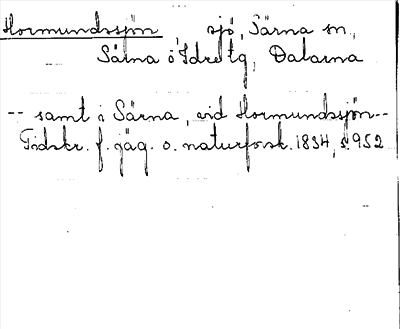 Hormundssjön, sjö, Särna sn,
Särna o Idre tg, Dalarna
-- samt i Särna, vid Hormundssjön --
Tidskr. f. jäg. o. naturforsk. 1834, s. 952